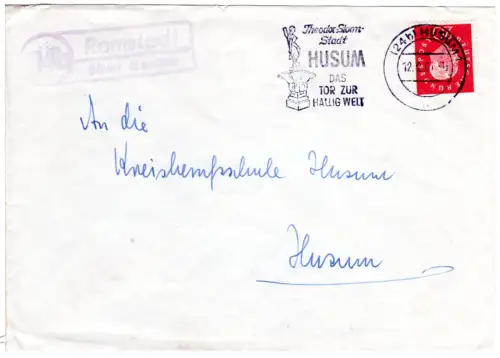 Ramstedt
über Husum
Theodor-Storm-
Stadt
HUSUM
DAS
TOR ZUR
HALLIG WELT
(24b) HUSUM
12.
An die
Kreisberufsschule Husum
Husum